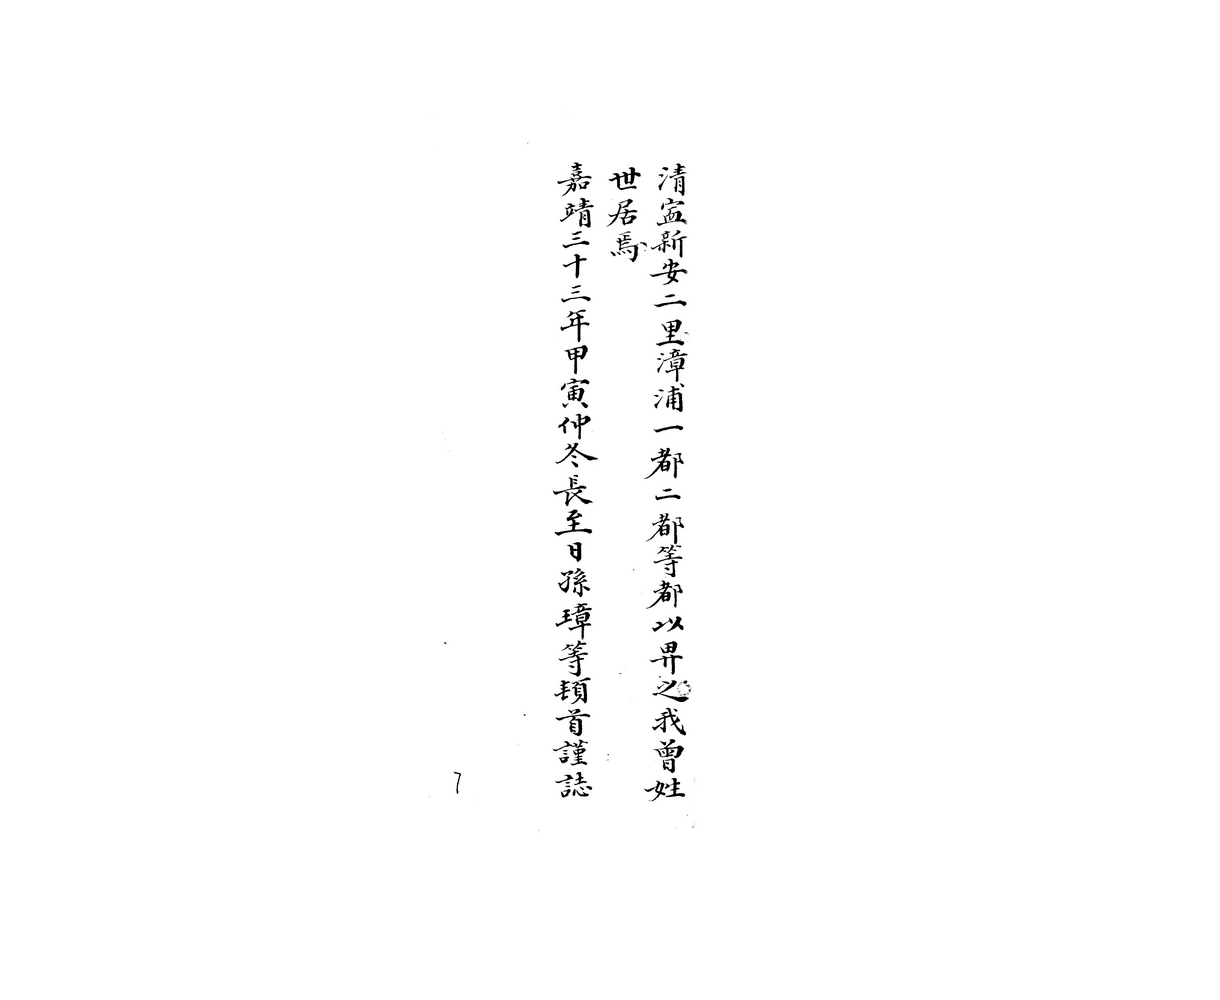 清寍新安二里漳浦一都二都等都以畀之我曾姓
世居焉
嘉靖三十三年甲寅仲冬長至日孫璋等頓首謹誌
7